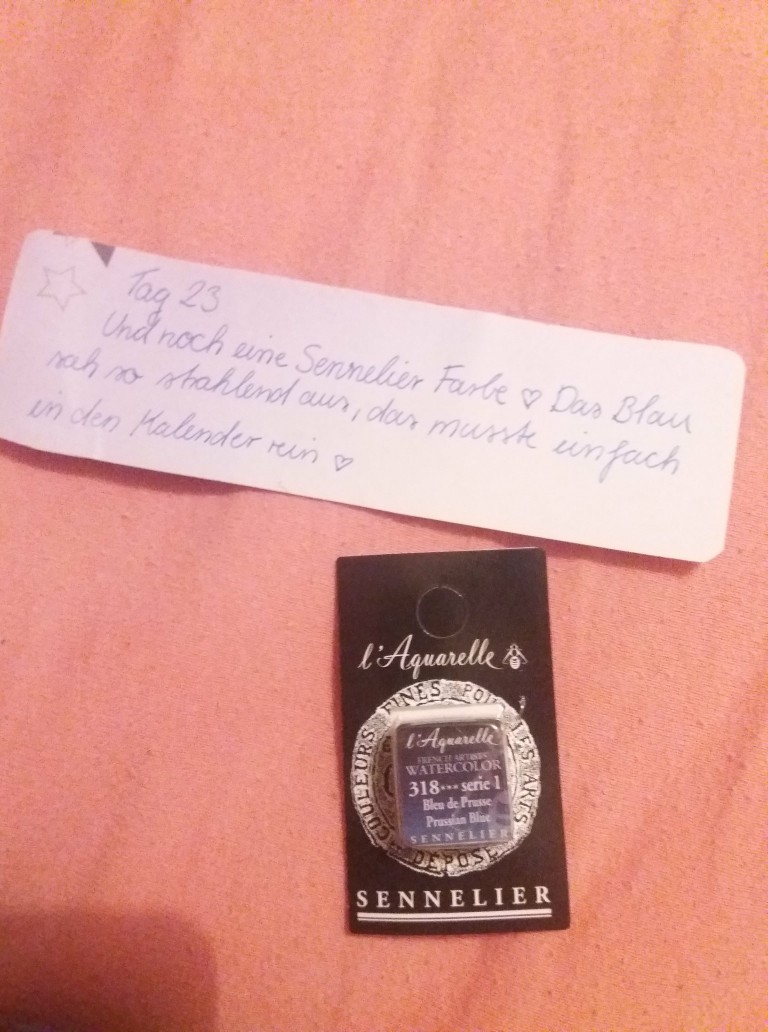 Tag 23
Und noch eine Sennelier Farbe ♡ Das Blau
sah so strahlend aus, das musste einfach
in den Kalender rein ♡
l'Aquarelle
COULEURS FINES POUR LES ARTS
DÉPOSÉ
l'Aquarelle
FRENCH ARTISTS'
WATERCOLOR
318*** serie 1
Bleu de Prusse
Prussian Blue
SENNELIER
SENNELIER